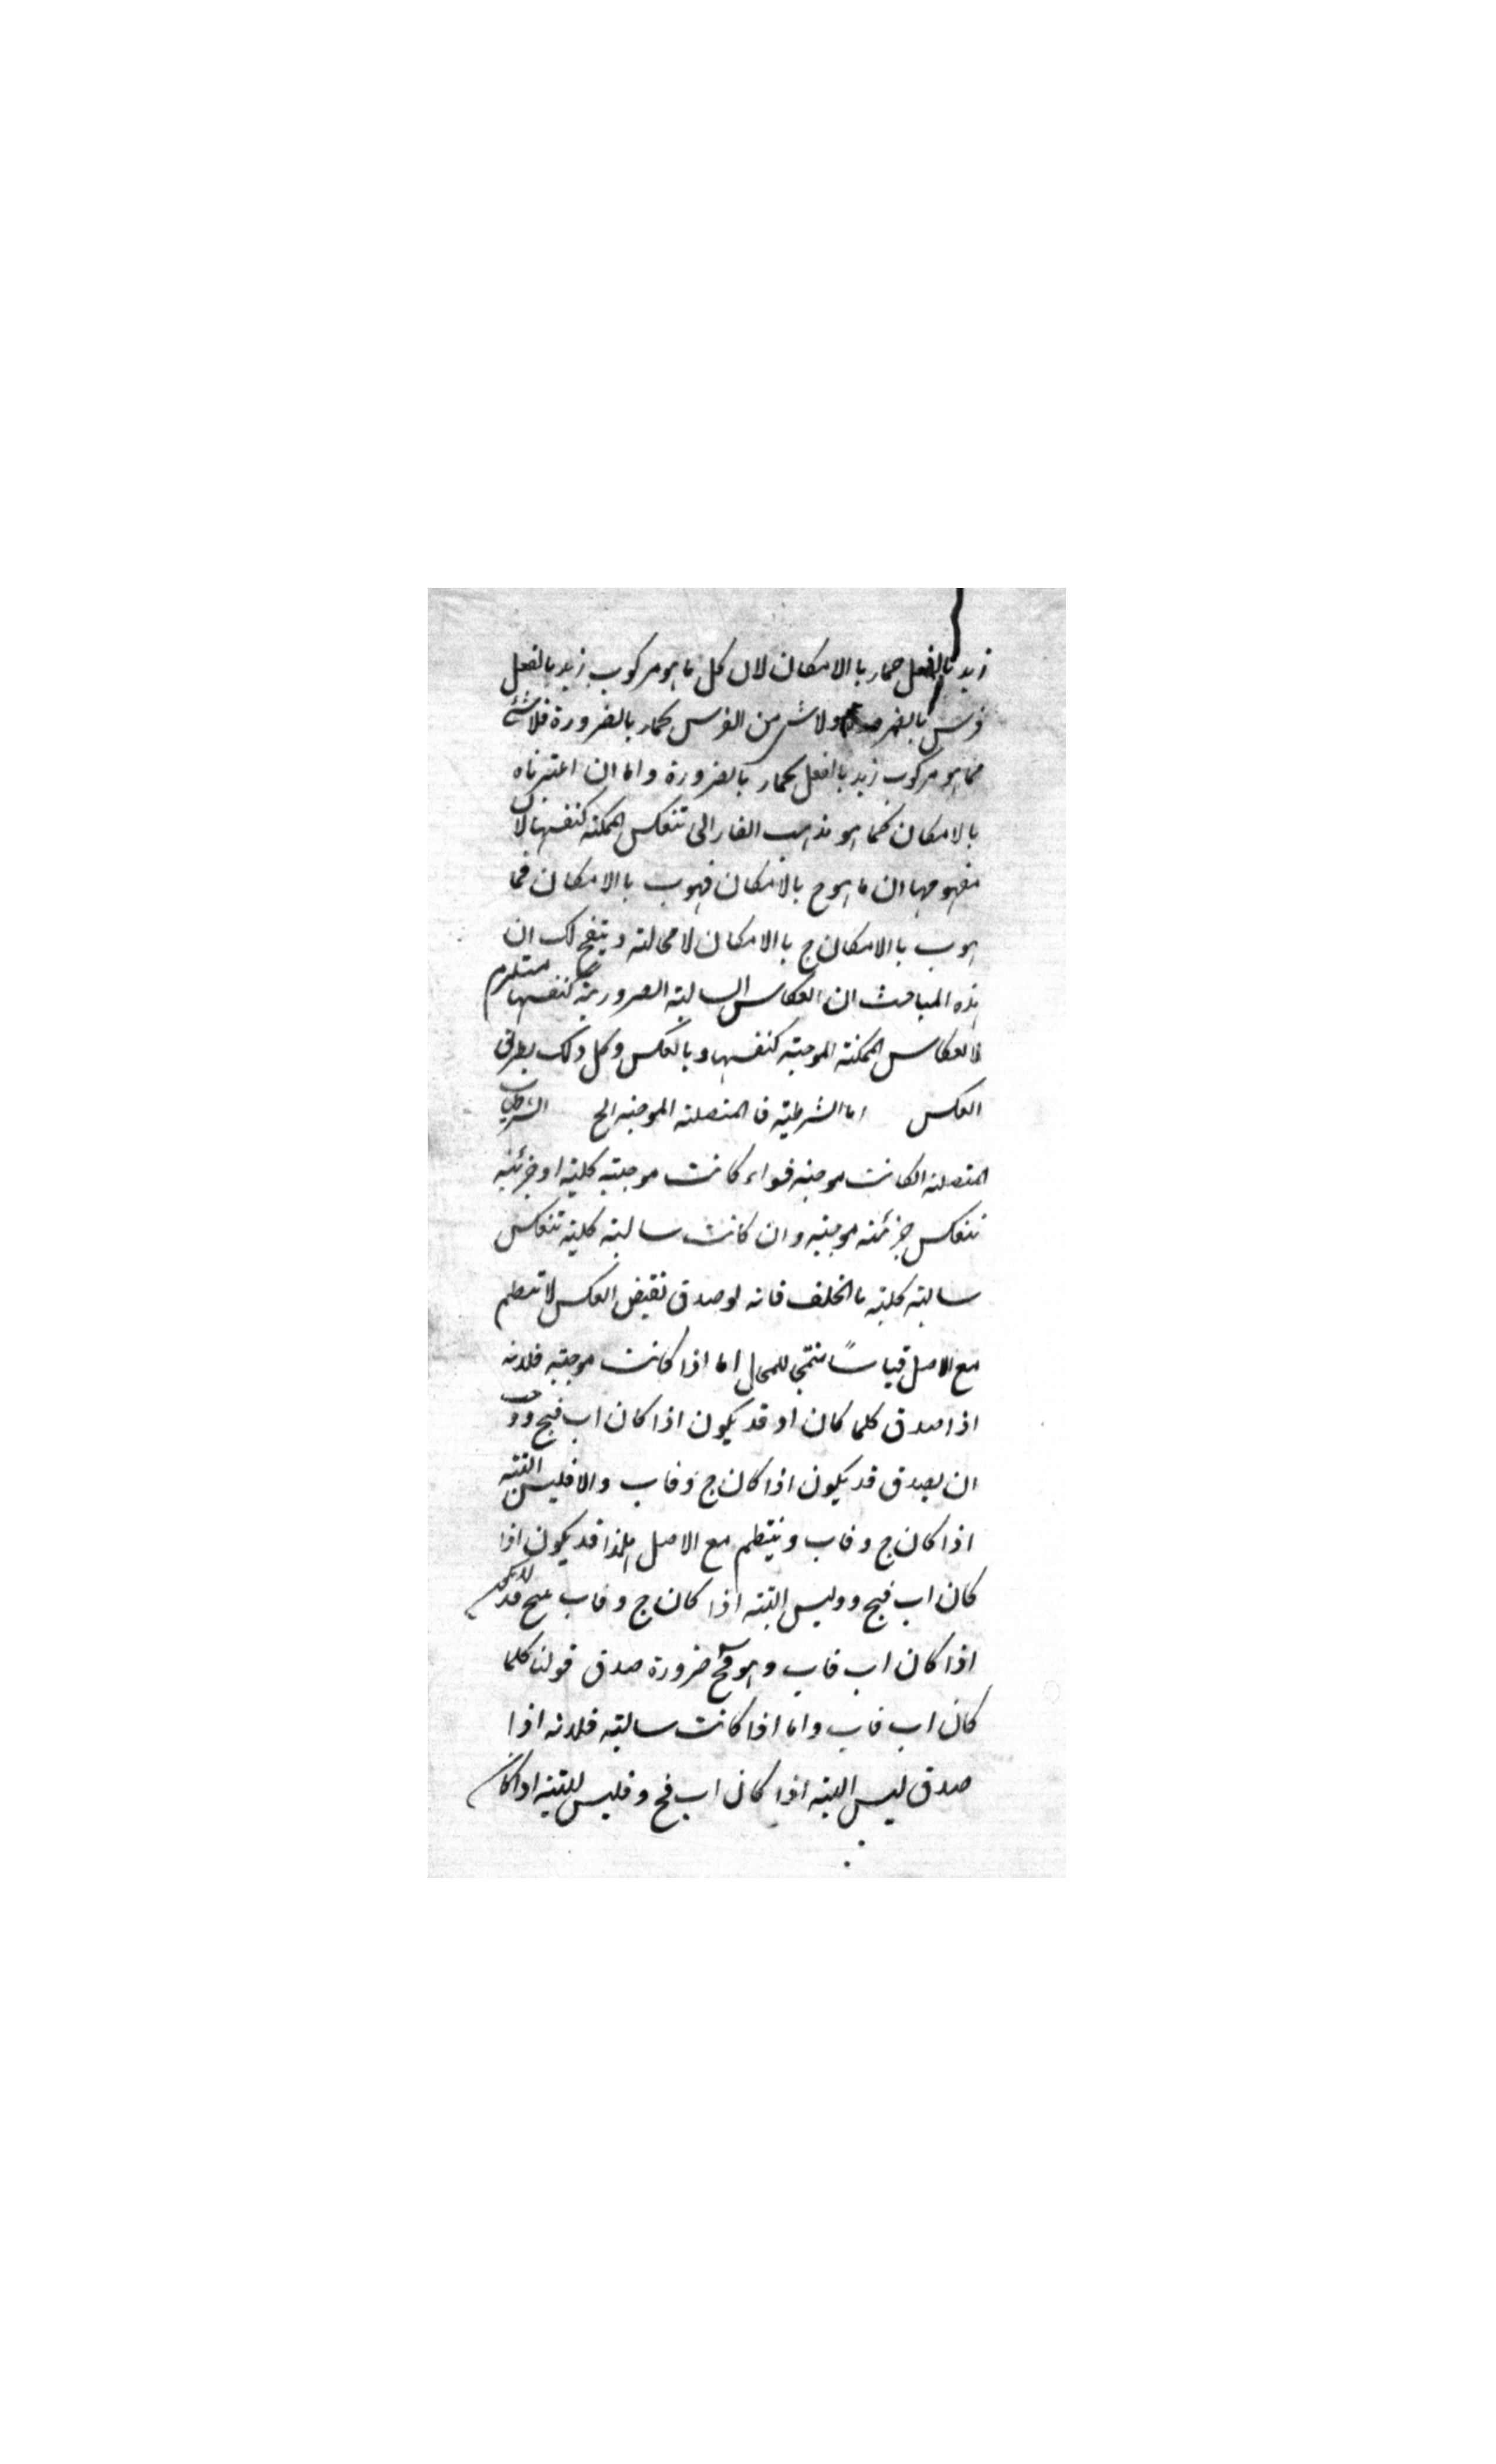 زيد بالفعل حمار باالامكان لان كل ما هو مركوب زيد بالفعل
فرس بالضرورة ولاشئ من الفرس بحمار بالضرورة فلاشئ
مما هو مركوب زيد باالفعل بحمار بالضرورة واما ان اعتبرناه
بالامكان كما هو مذهب الفارابى تنعكس الممكنة كنفسها لان
مفهومها ان ما هو ج بالامكان فهو ب باالامكان فما
هو ب باالامكان ج باالامكان لا محالة ويتضح لك ان
هذه المباحث ان انعكاس السالبة الضرورية كنفسها مستلزم
لانعكاس الممكنة الموجبة كنفسها وبالعكس وكل ذلك بطريق
العكس اما الشرطية فالمتصلة الموجبة الخ الشرطية
المتصلة انكانت موجبة فسواء كانت موجبة كلية او جزئية
تنعكس جزئية موجبة وان كانت سالبة كلية تنعكس
سالبة كلية باالخلف فانه لو صدق نقيض العكس لانتظم
مع الاصل قياسًا منتج للمحال اما اذا كانت موجبة فلانه
اذا صدق كلما كان او قد يكون اذا كان اب فج د وجب
ان يصدق قد يكون اذا كان ج د فاب والا فليس البتة
اذا كان ج د فاب وينتظم مع الاصل هكذا قد يكون اذا
كان اب فج د وليس البتة اذا كان ج د فاب ينتج قد لا يكون
اذا كان اب فاب وهو مح ضرورة صدق قولنا كلما
كان اب فاب واما اذا كانت سالبة فلانه اذا
صدق ليس البتة اذا كان اب فج د فليس البتة اذا كان